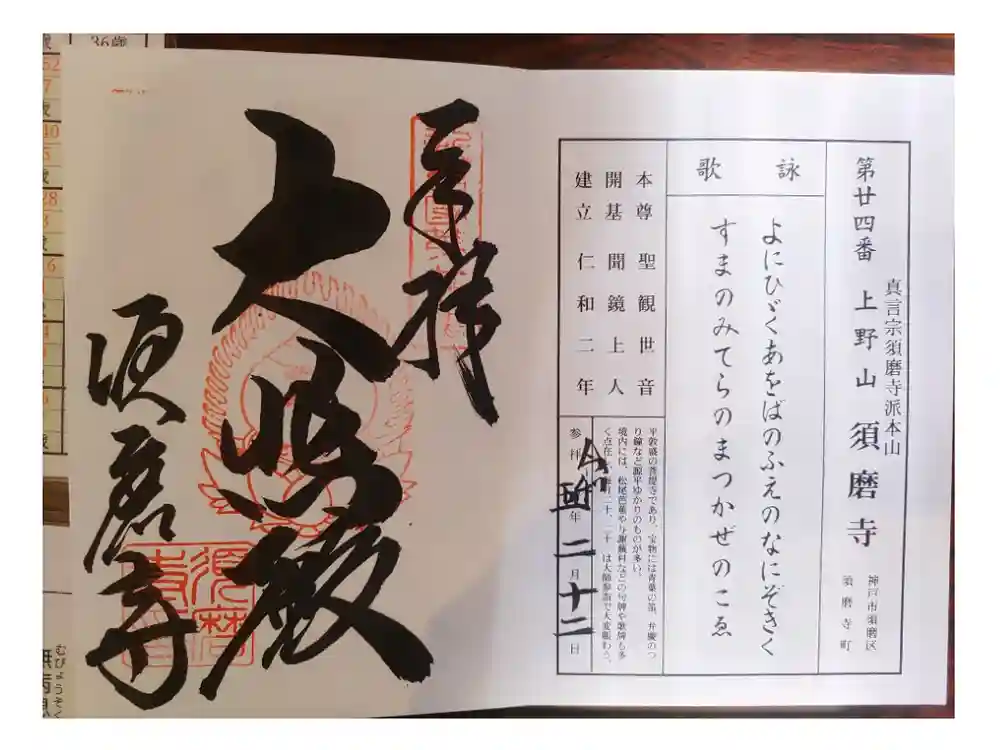 真言宗須磨寺派本山
第廿四番 上野山 須磨寺
神戸市須磨区
須磨寺町
詠歌
よにひゞくあをばのふえのなにぞきく
すまのみてらのまつかぜのこゑ
本尊 聖観世音
開基 聞鏡上人
建立 仁和二年
平敦盛の菩提寺であり、宝物には青葉の笛、弁慶のつ
り鐘など源平ゆかりのものが多い。
境内には、松尾芭蕉や与謝蕪村などの句碑や歌碑も多
く点在
は大師参詣で大変賑わう。
参拝 年 二月十二日
奉拝
大師殿
須磨寺
須磨
寺
36歳
むびょうそく